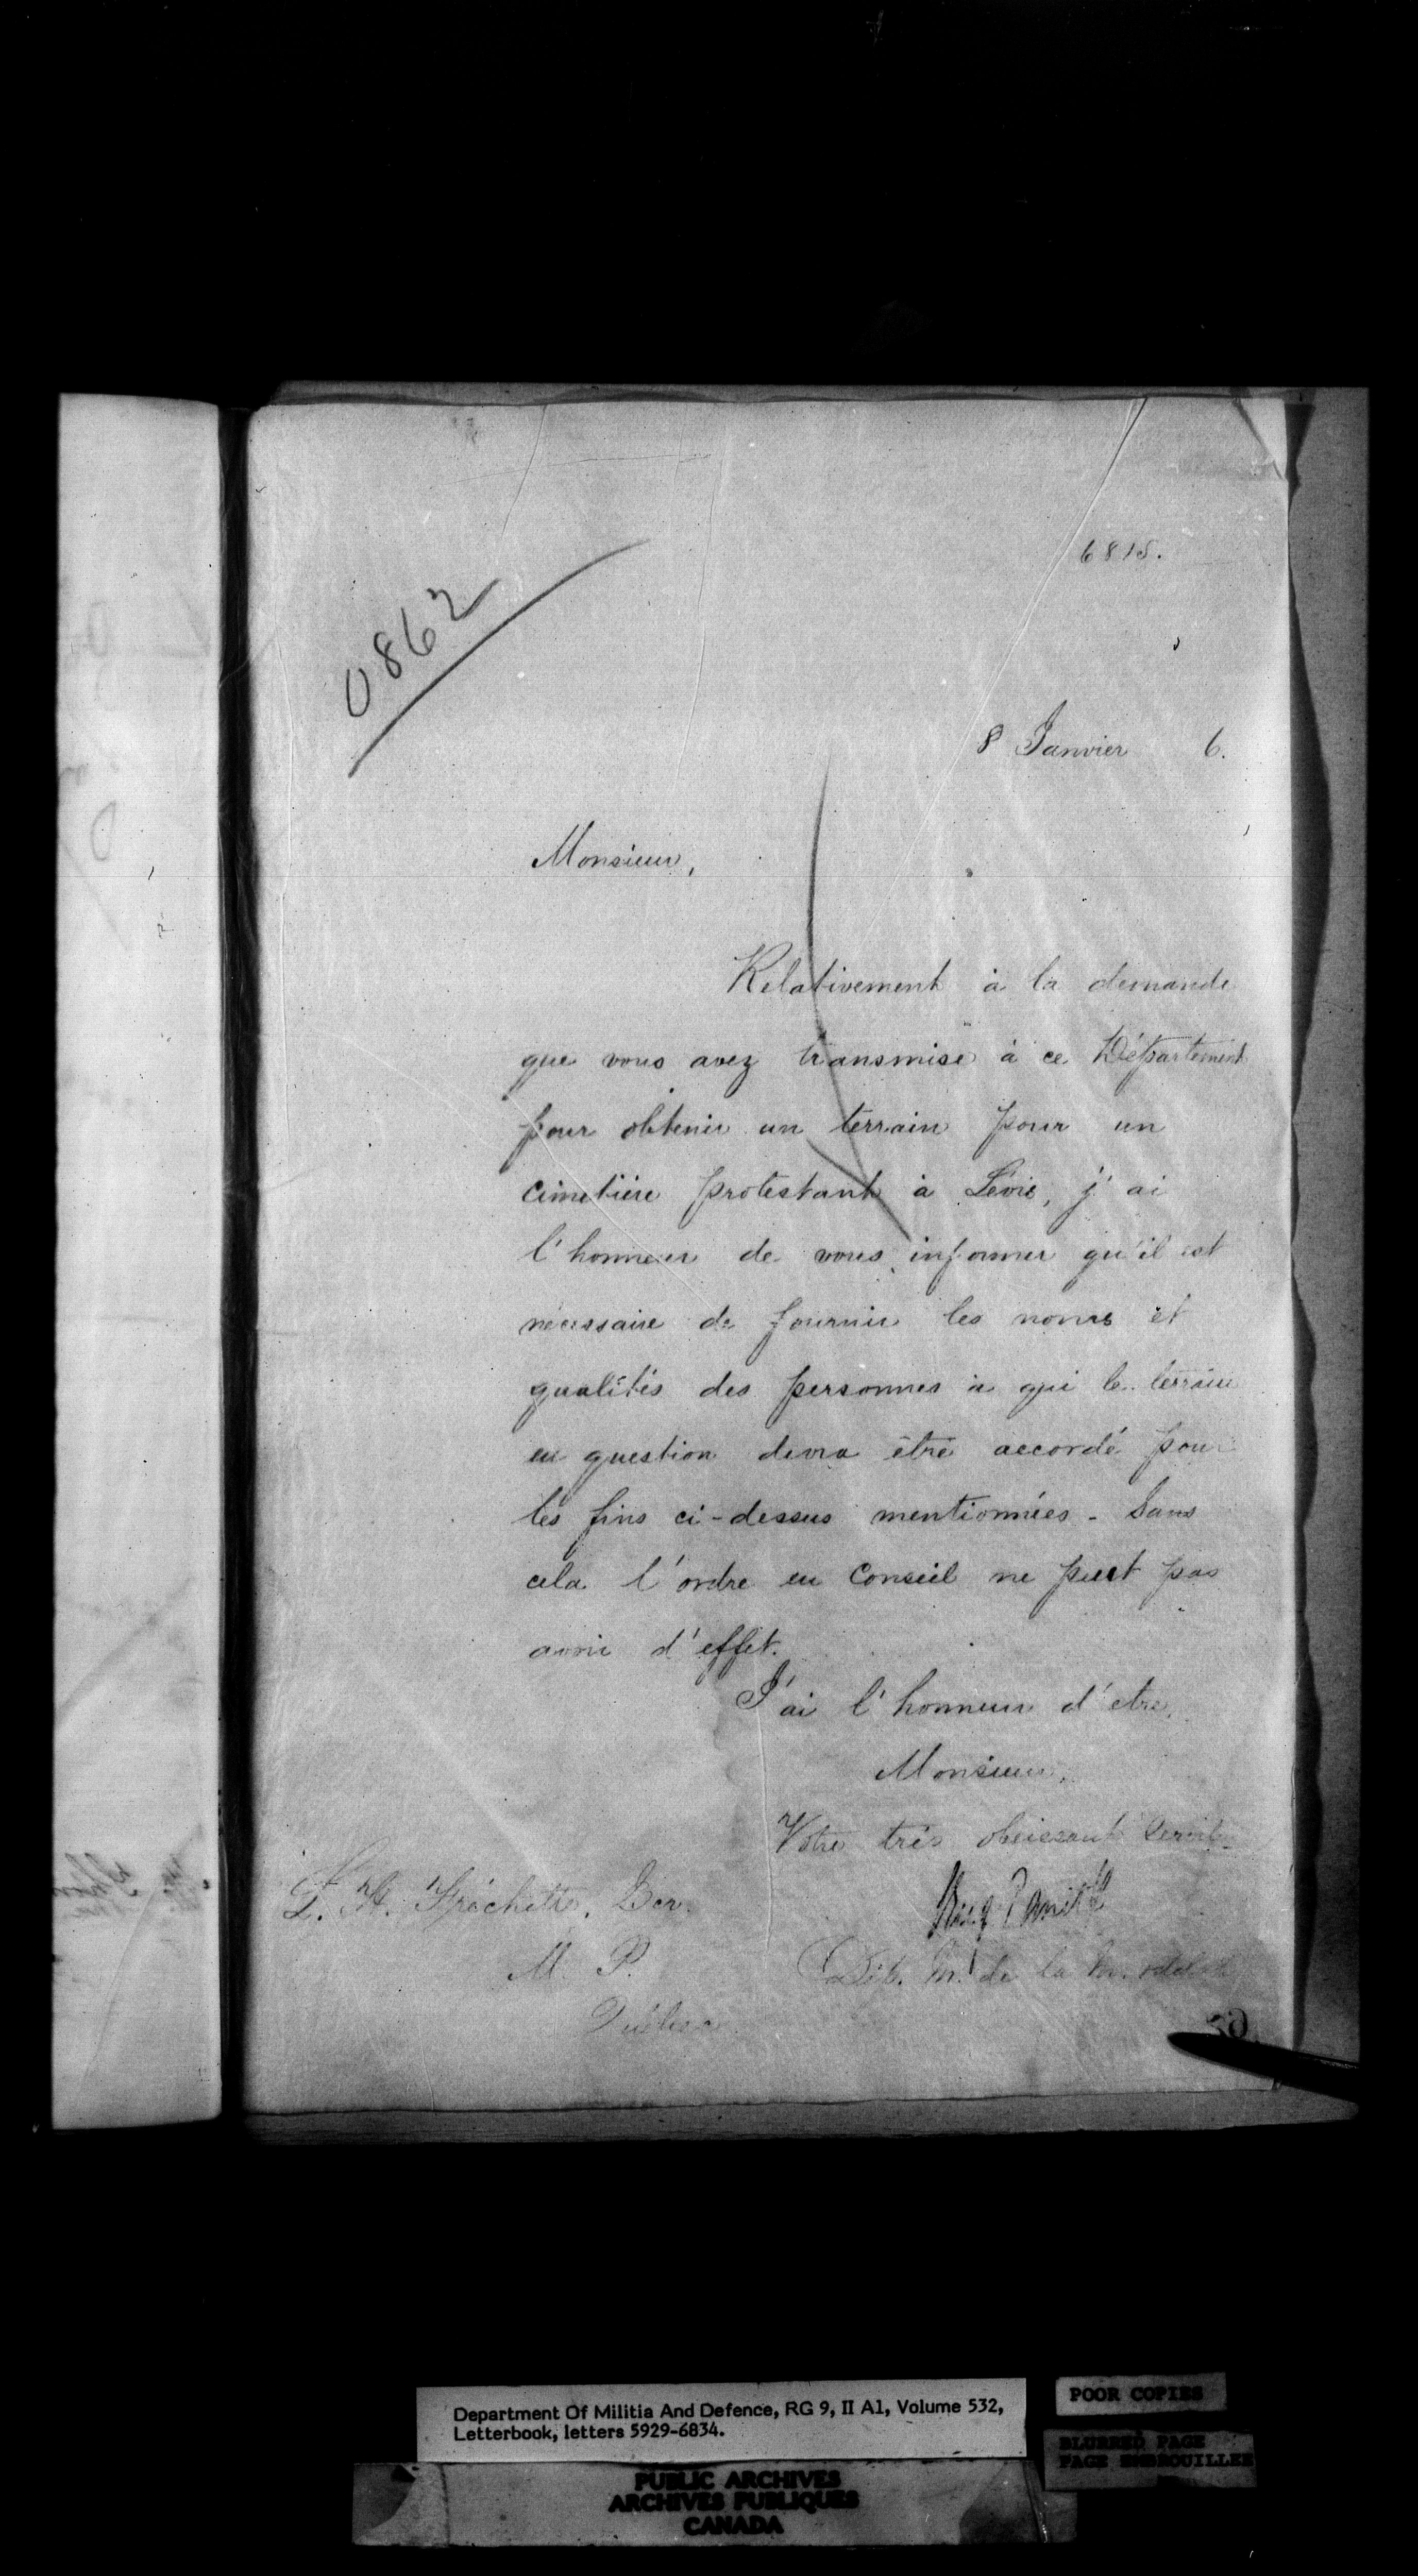 6815.
0862
8 Janvier 6.
Monsieur,
Relativement à la demande
que vous avez transmise à ce Département
pour obtenir un terrain pour un
cimetière protestant à Lévis, j'ai
l'honneur de vous informer qu'il est
nécessaire de fournir les noms et
qualités des personnes à qui le terrain
en question devra être accordé pour
les fins ci-dessus mentionnées - Sans
cela l'ordre en Conseil ne peut pas
avoir d'effet.
J'ai l'honneur d'etre,
Monsieur,
Votre très obeissant Servit.
L. H. Fréchette, Ecr.
M. P.
Dép. M. de la M.
Québec
Department Of Militia And Defence, RG 9, II A1, Volume 532,
Letterbook, letters 5929-6834.
POOR COPIES
BLURRED PAGE
PAGE EMBROUILLEE
PUBLIC ARCHIVES
ARCHIVES PUBLIQUES
CANADA